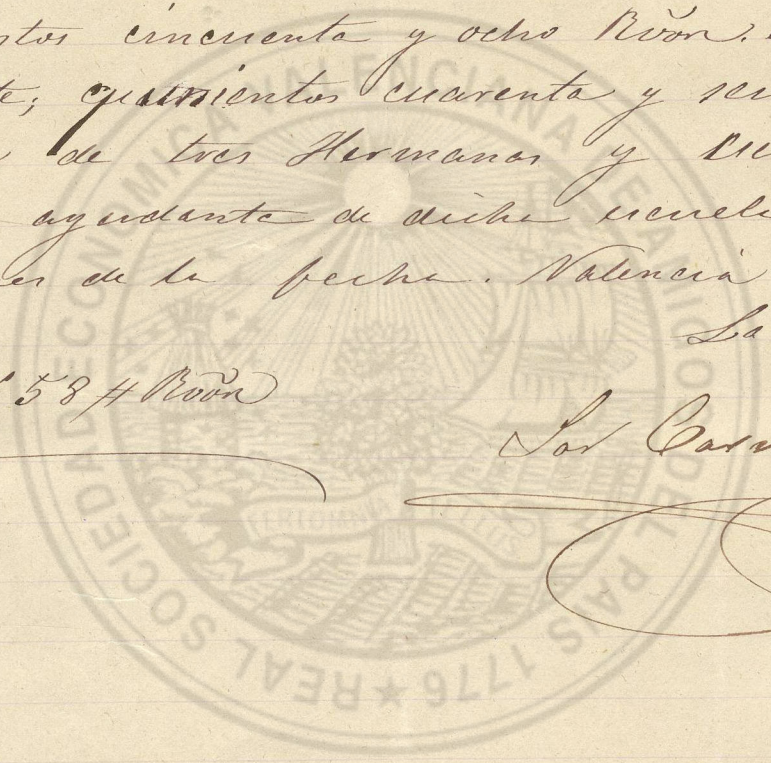 stos cincuenta y ocho Rvon.
te; quinientos cuarenta y sei
de tres Hermanas y
ayudanta de dicha escuel
es de la fecha. Valencia
La
58 # Rvon
Sor Carm
REAL SOCIEDAD ECONOMICA VALENCIANA DE AMIGOS DEL PAIS 1776
FERT OMNIA